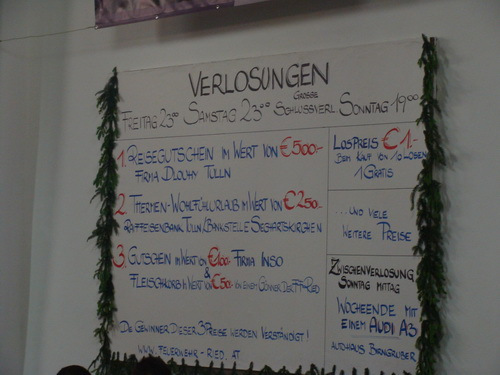 VERLOSUNGEN
FREITAG 23⁰⁰ SAMSTAG 23⁰⁰ GROSSE SCHLUSSVERL. SONNTAG 19⁰⁰
1. REISEGUTSCHEIN IM WERT VON €500.-
FIRMA DLOUHY TULLN
2. THERMEN-WOHLFÜHLURLAUB IM WERT VON €250.-
RAIFFEISENBANK TULLN/BANKSTELLE SIEGHARTSKIRCHEN
3. GUTSCHEIN IM WERT VON €100.- FIRMA INSO
&
FLEISCHKORB IM WERT VON €50.- VON EINEM GÖNNER DER FF-RIED
DIE GEWINNER DIESER 3 PREISE WERDEN VERSTÄNDIGT!
WWW.FEUERWEHR-RIED.AT
LOSPREIS €1.-
BEIM KAUF VON 10 LOSEN
1 GRATIS
...UND VIELE
WEITERE PREISE
ZWISCHENVERLOSUNG
SONNTAG MITTAG
WOCHEENDE MIT
EINEM AUDI A3
AUTOHAUS BIRNGRUBER